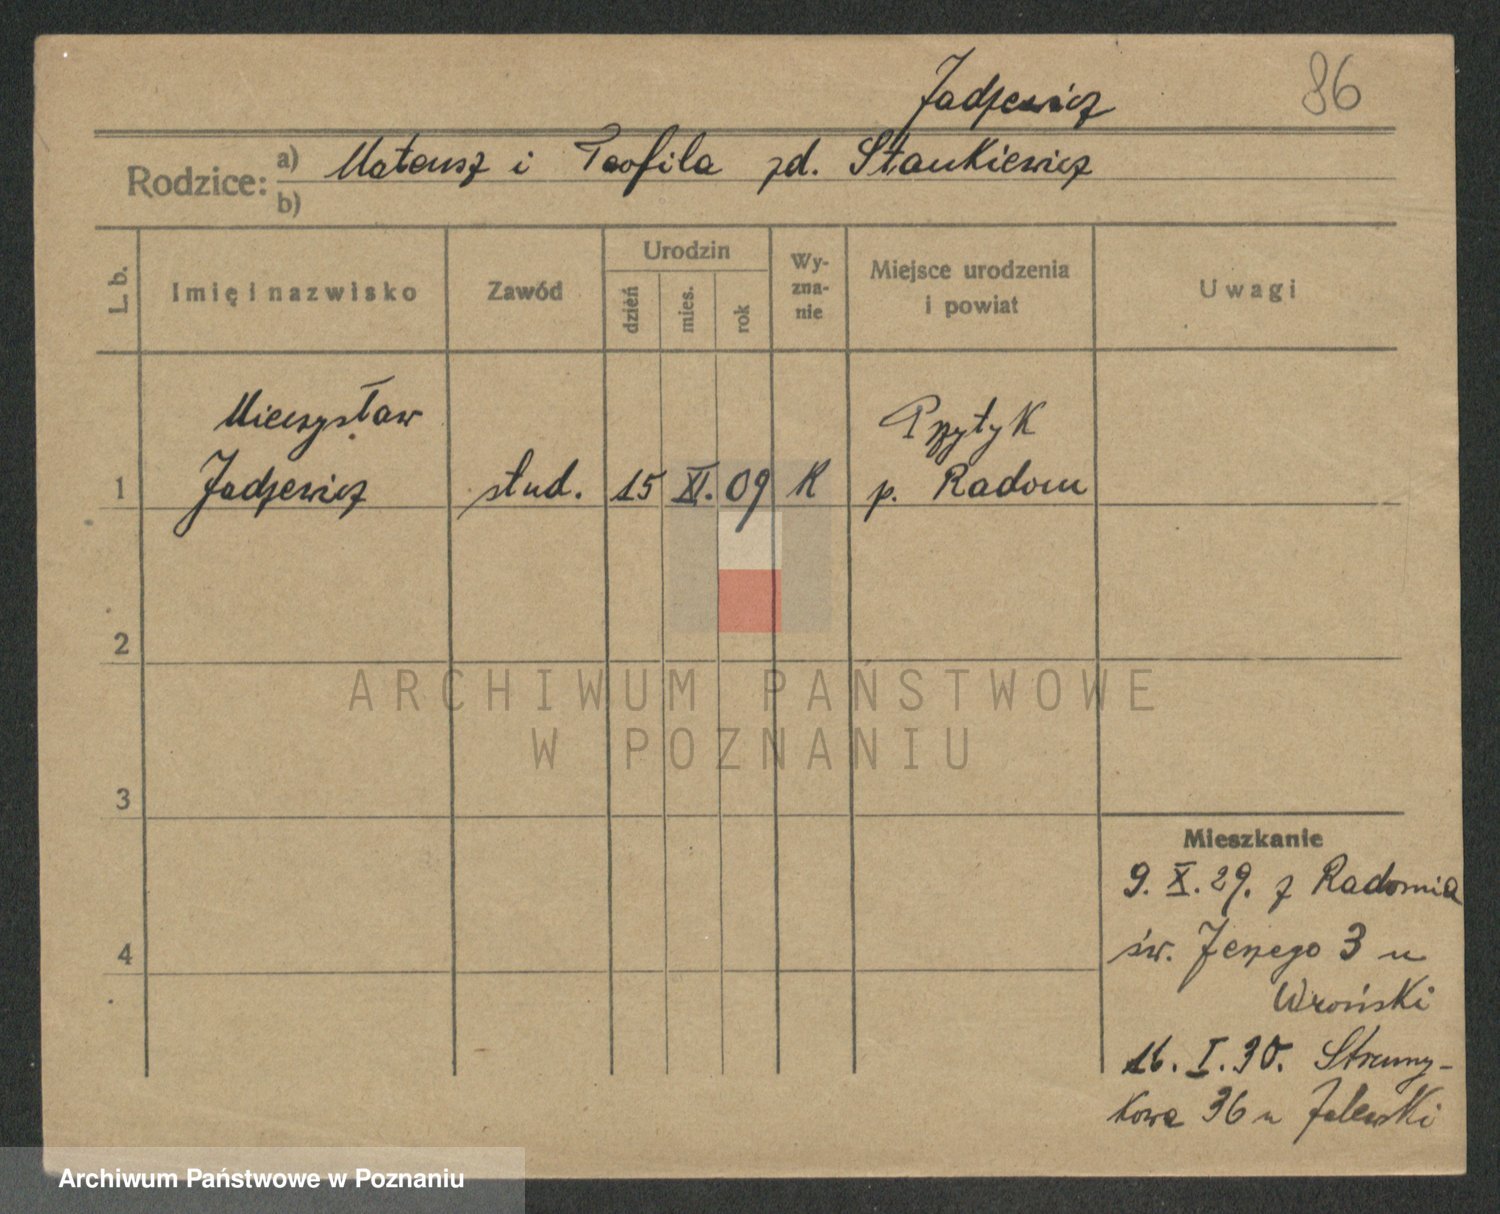 Jadzewicz
86
Rodzice: a) Mateusz i Teofila zd. Stankiewicz
b)
L. b.
Imię i nazwisko
Zawód
Urodzin
dzień
mies.
rok
Wy-
zna-
nie
Miejsce urodzenia
i powiat
Uwagi
Mieczysław
Przytyk
1 Jadzewicz stud. 15 XI. 09 R p. Radom
2
ARCHIWUM PAŃSTWOWE
W POZNANIU
3
4
Mieszkanie
9. X. 29. z Radomia
św. Jerzego 3 u
Wroński
16. I. 30. Strumy-
kowa 36 u Zalewski
Archiwum Państwowe w Poznaniu